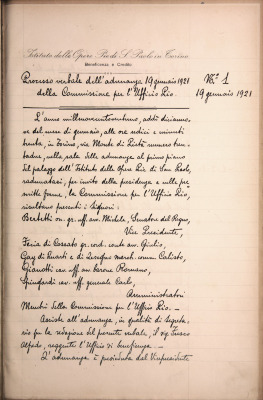 Istituto delle Opere Pie di S. Paolo in Torino
Beneficenza e Credito
Processo verbale dell'adunanza 19 gennaio 1921
della Commissione per l'Ufficio Pio.
N.° 1
19 gennaio 1921
L'anno millenovecentoventuno, addì diciannove
del mese di gennaio, alle ore undici e minuti
trenta, in Torino, via Monte di Pietà numero
nella sala delle adunanze al primo piano
del palazzo dell'Istituto delle Opere Pie di San Paolo,
radunatasi, per invito della presidenza e nelle prescritte
forme, la Commissione per l'Ufficio Pio,
risultano presenti i signori:
Bertetti on. gr. uff. avv. Michele, Senatore del Regno,
Vice Presidente,
Feria di Cossato gr. cord. conte avv. Giulio,
Gay di Quarti e di march. comm. Calisto,
Gianotti cav. uff. avv. barone Romano,
cav. uff. generale Carlo,
Amministratori
Membri della Commissione per l'Ufficio Pio. —
Assiste all'adunanza, in qualità di segretario
per la redazione del presente verbale, il sig.
Alfredo, reggente l'Ufficio di beneficenza. —
L'adunanza è presieduta dal Vicepresidente